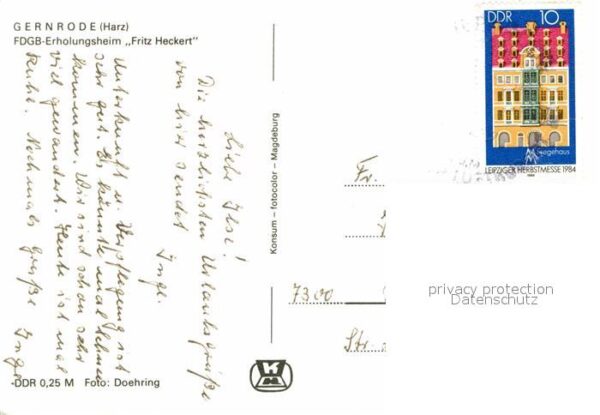 GERNRODE (Harz)
FDGB-Erholungsheim „Fritz Heckert"
Liebe Ilse!
Die herzlichsten Urlaubsgrüße
von hier sendet
Inge.
Unterkunft u. Verpflegung ist
sehr gut. Es könnte mal
kommen. Wir sind schon sehr
viel gewandert. Heute ist mal
Ruhe. Nochmals Grüße Inge
Konsum – fotocolor – Magdeburg
DDR 10
egehaus
LEIPZIGER HERBSTMESSE 1984
Fr.
7300
Str.
privacy protection
Datenschutz
-DDR 0,25 M Foto: Doehring